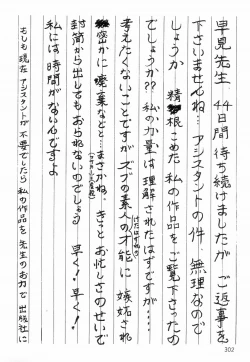 早見先生　44日間待ち続けましたが　ご返事を
下さいませんね…アシスタントの件、無理なので
しょうか　精根こめた私の作品をご覧下さったの
でしょうか??　私の力量は理解されたはずですが…
考えたくないことですが　ズブの素人の才能に
けたはずれの
嫉妬され
密かに廃棄などと…まさかね。きっとお忙しさのせいで
封筒から出してもおられないのでしょう　早く!早く!
私には時間がないんですよ
もしも現在アシスタントが不要でしたら　私の作品を先生のお力で出版社に
302